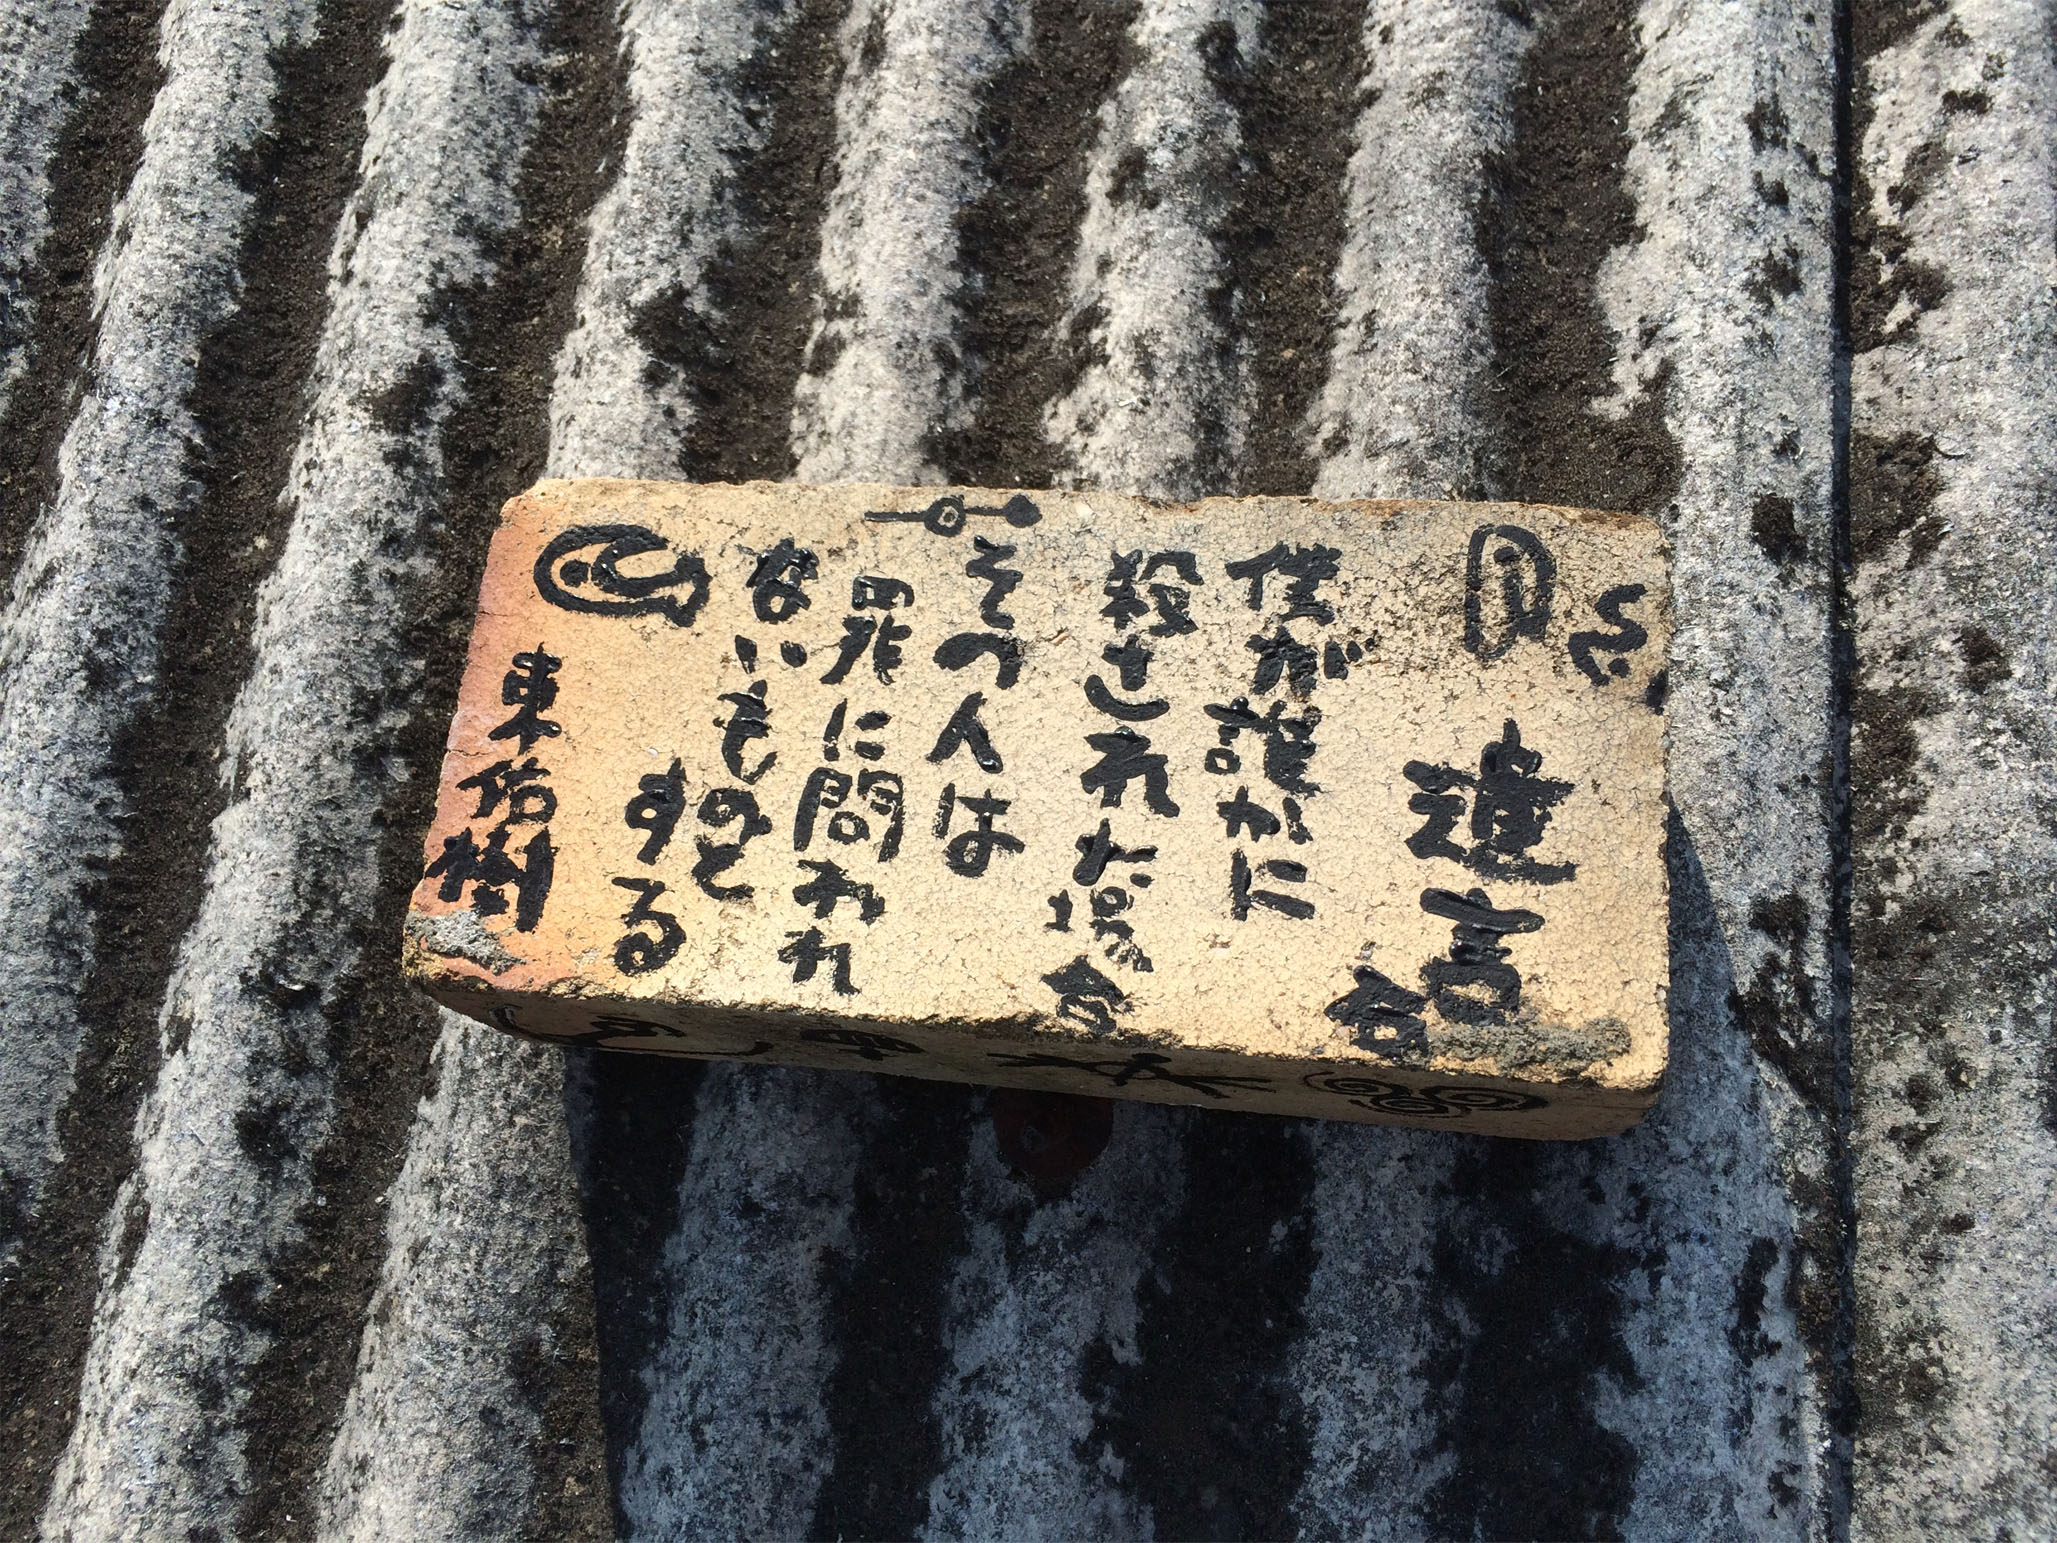 遺言
僕が誰かに
殺された場合
その人は
罪に問われ
ないものと
する
東佑樹